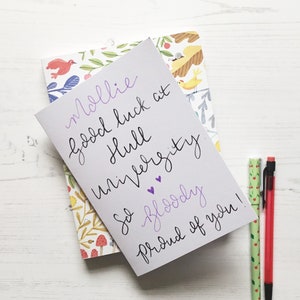 Mollie
Good luck at
Hull
University
So
Bloody
Proud of you!